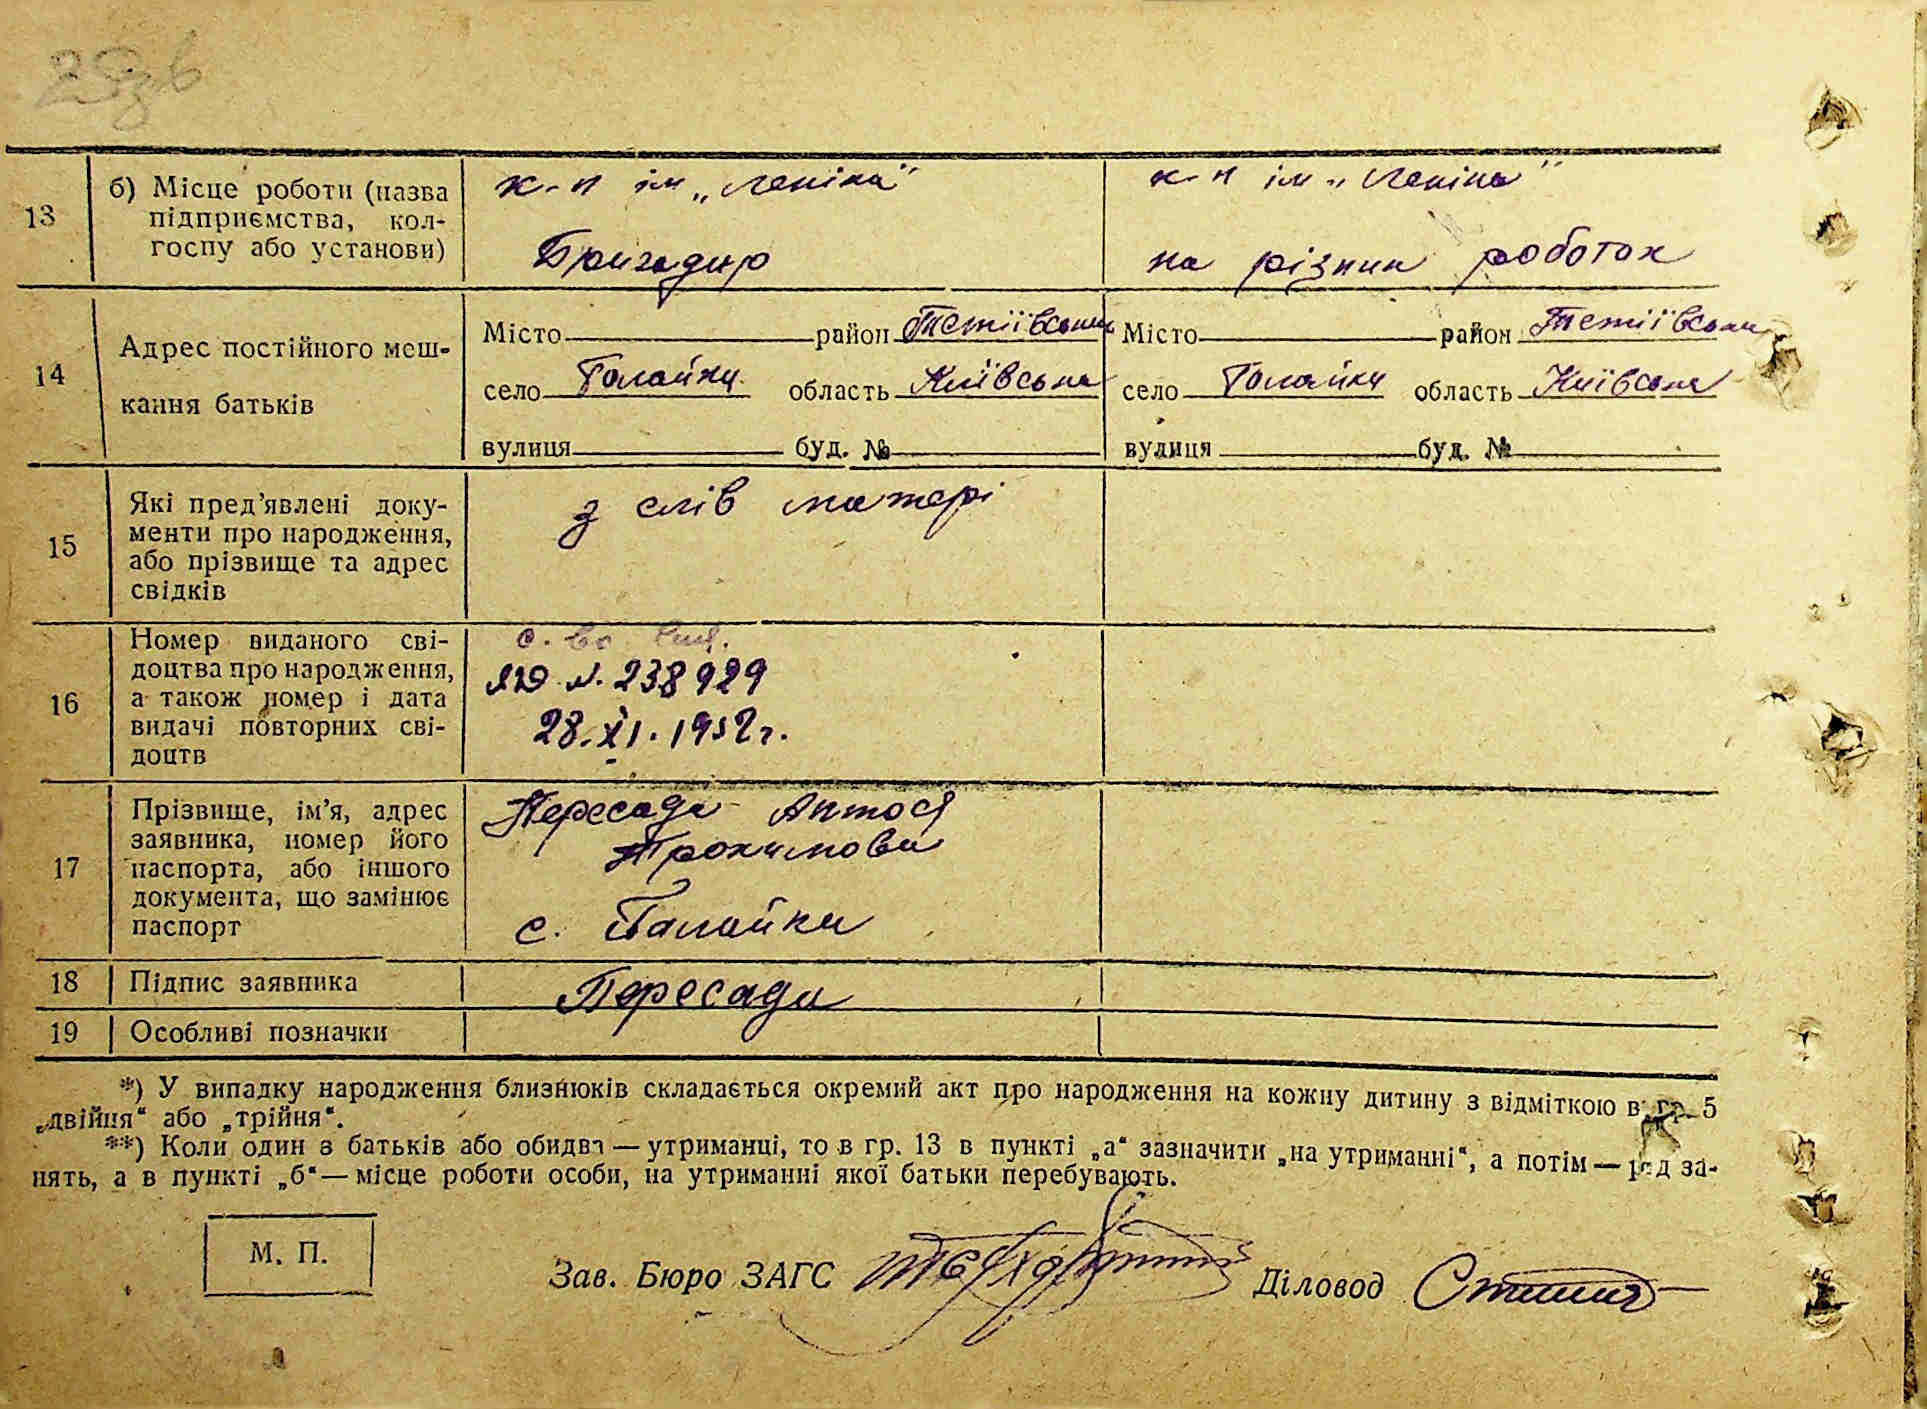 13
б) Місце роботи (назва
підприємства, кол-
госпу або установи)
к-п ім „Леніна"
Бригадир
к-п ім „Леніна"
на різних роботах
14
Адрес постійного меш-
кання батьків
Місто район Тетіївський
село Галайки область Київська
вулиця буд. №
Місто район Тетіївський
село Галайки область Київська
вулиця буд. №
15
Які пред'явлені доку-
менти про народження,
або прізвище та адрес
свідків
з слів матері
16
Номер виданого сві-
доцтва про народження,
а також номер і дата
видачі повторних сві-
доцтв
ЯЮ N. 238929
28.XI.1952 г.
17
Прізвище, ім'я, адрес
заявника, номер його
паспорта, або іншого
документа, що замінює
паспорт
Пересада Антося
Трохимовна
с. Галайки
18
Підпис заявника
Пересада
19
Особливі позначки
*) У випадку народження близнюків складається окремий акт про народження на кожну дитину з відміткою в гр. 5
„двійня“ або „трійня“.
**) Коли один з батьків або обидва — утриманці, то в гр. 13 в пункті „а“ зазначити „на утриманні“, а потім — рід за-
нять, а в пункті „б“ — місце роботи особи, на утриманні якої батьки перебувають.
М. П.
Зав. Бюро ЗАГС
Діловод